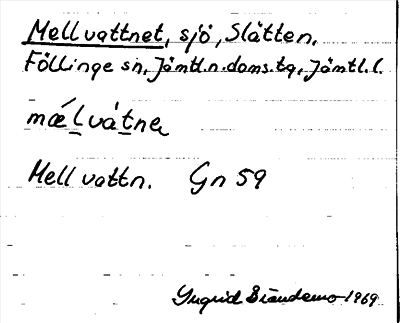 Mellvattnet, sjö, Slåtten,
Föllinge sn, Jämtl.n.doms.tg, Jämtl.l.
mælvátnⱥ
Mellvattn. Gn 59
Ingrid 1969